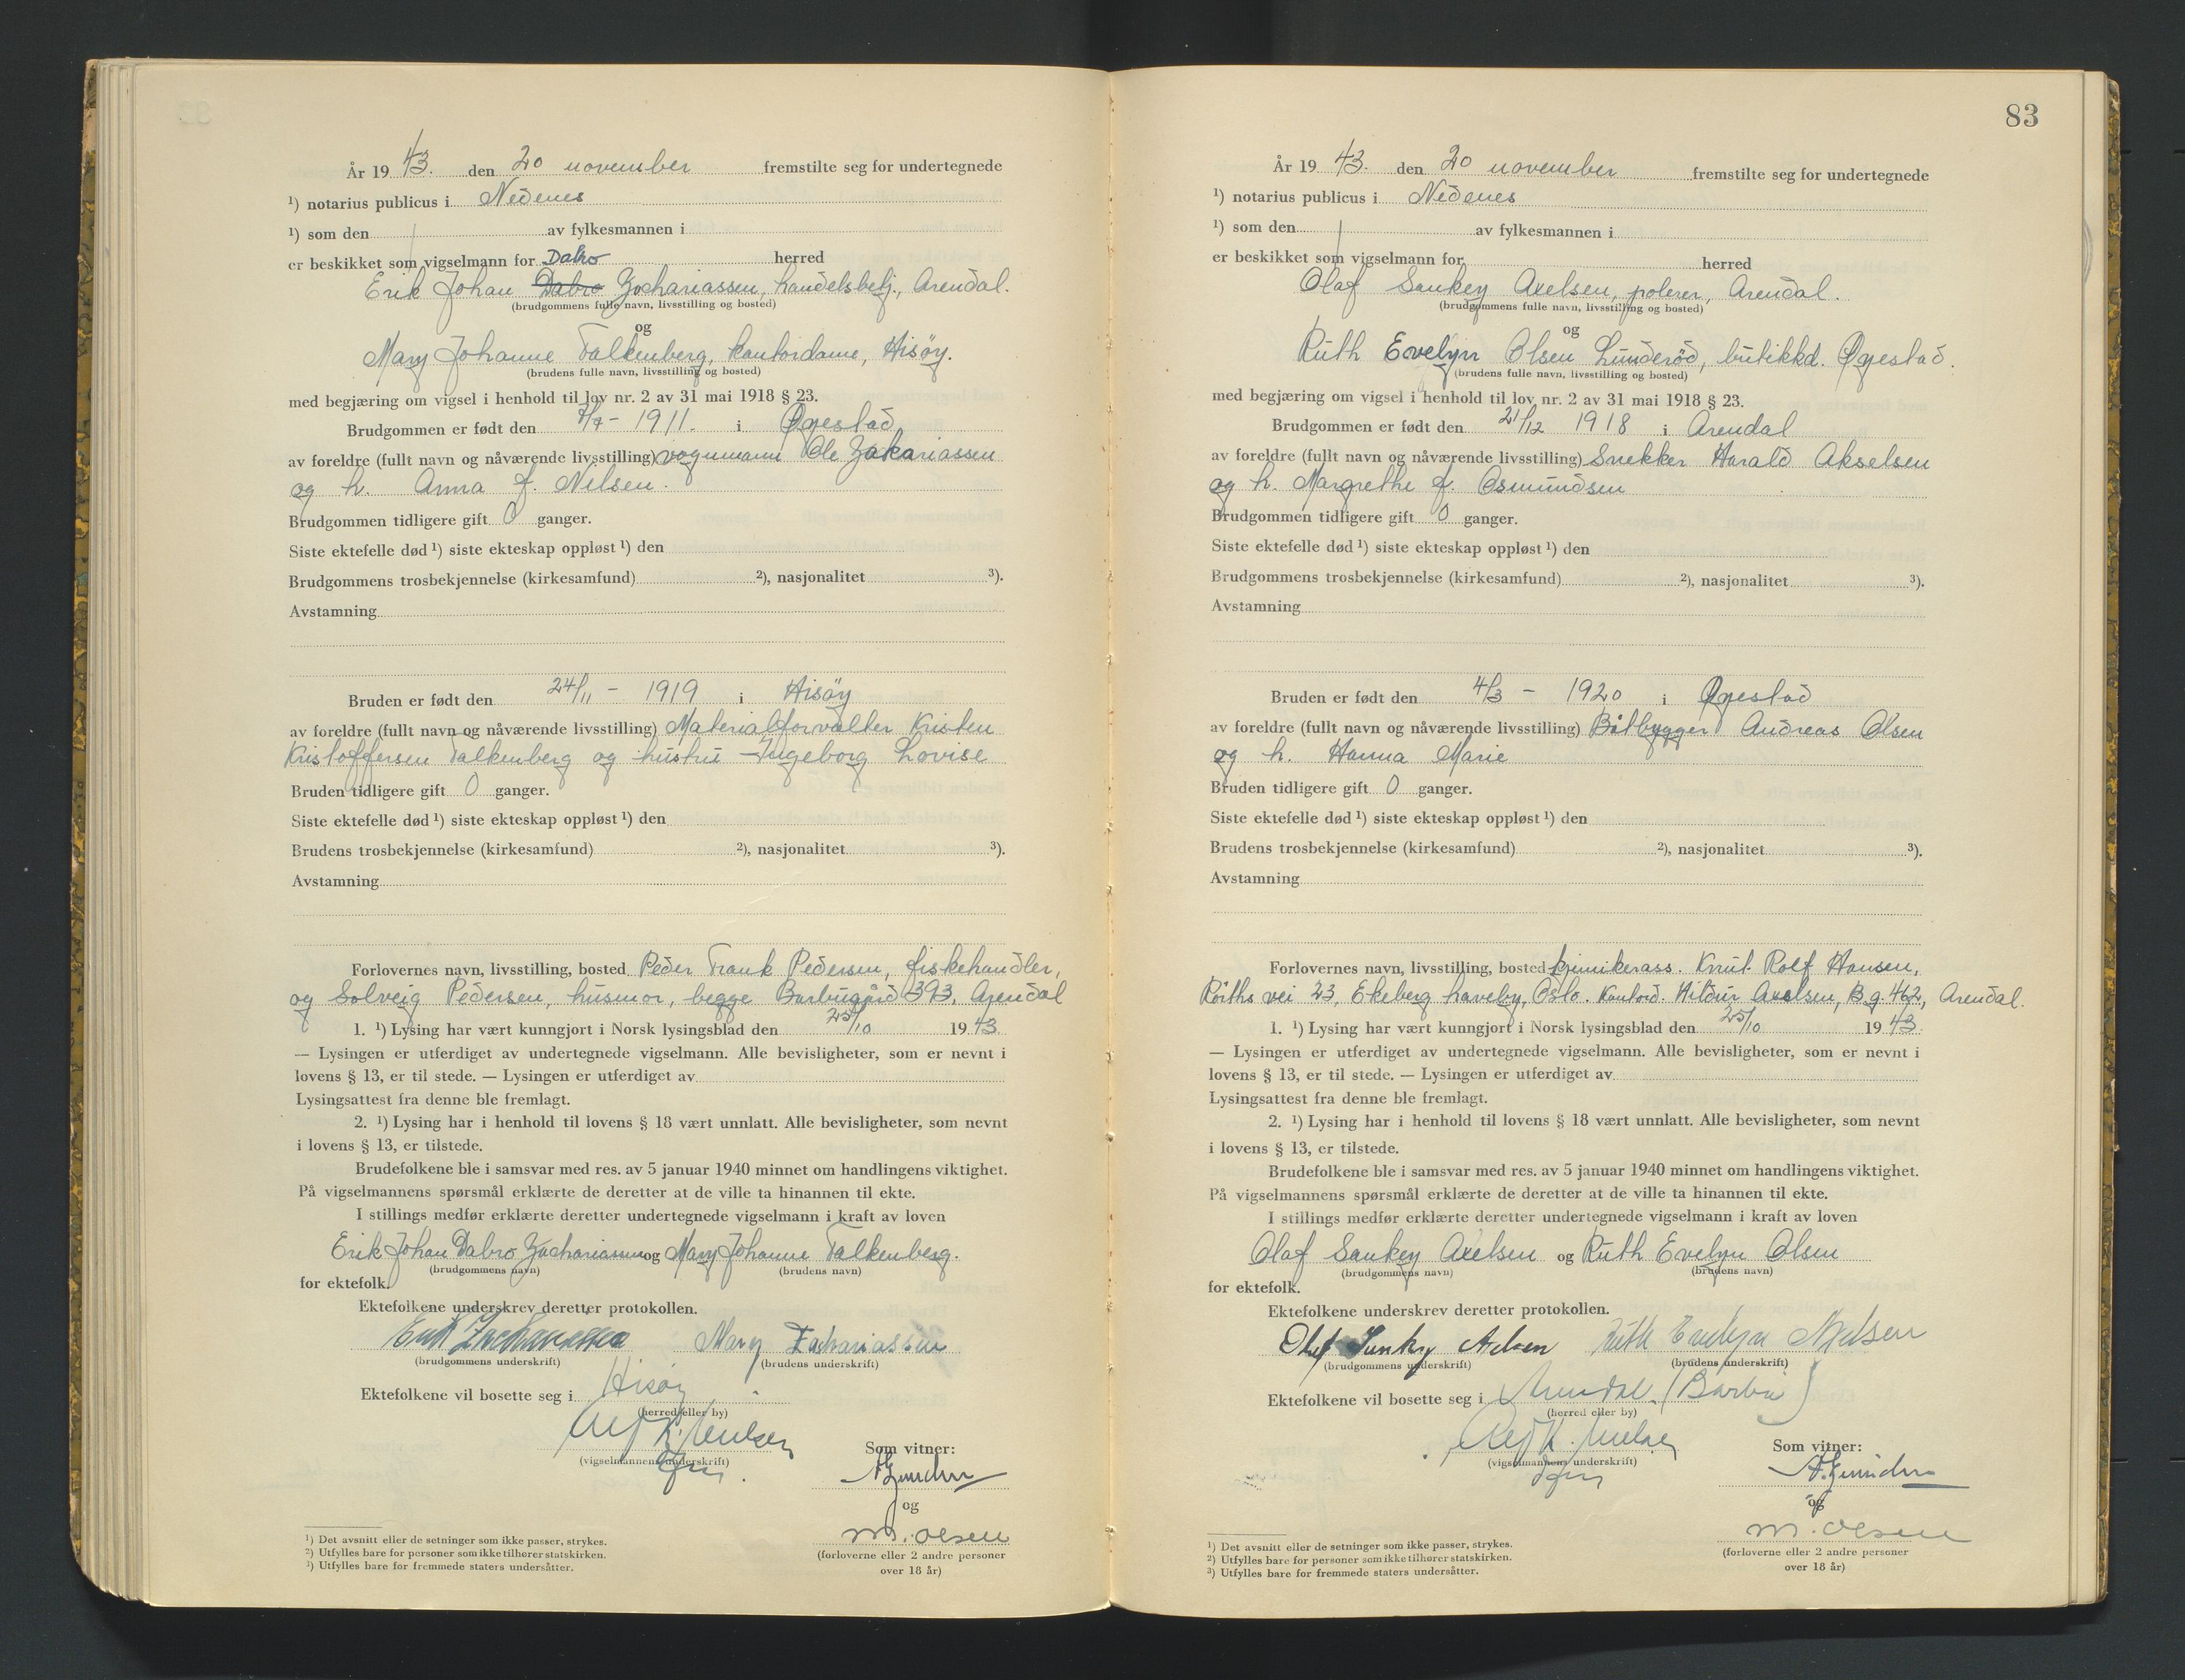 År 19 43. den 20 november fremstilte seg for undertegnede
¹) notarius publicus i Nedenes
¹) som den / av fylkesmannen i
er beskikket som vigselmann for Dabro herred
Erik Johan Dabro Zachariassen, handelsbetj., Arendal.
(brudgommens fulle navn, livsstilling og bosted)
og
Mary Johanne Falkenberg, kontordame, Hisøy.
(brudens fulle navn, livsstilling og bosted)
med begjæring om vigsel i henhold til lov nr. 2 av 31 mai 1918 § 23.
Brudgommen er født den - 1911. i Øyestad
av foreldre (fullt navn og nåværende livsstilling) vognmann Ole Zakariassen
og h. Anna f. Nilsen.
Brudgommen tidligere gift 0 ganger.
Siste ektefelle død ¹) siste ekteskap oppløst ¹) den
Brudgommens trosbekjennelse (kirkesamfund) ²), nasjonalitet ³).
Avstamning
Bruden er født den 24/11 - 1919 i Hisöy
av foreldre (fullt navn og nåværende livsstilling) Materialforvalter Kristen
Kristoffersen Falkenberg og hustru Ingeborg Lovise
Bruden tidligere gift 0 ganger.
Siste ektefelle død ¹) siste ekteskap oppløst ¹) den
Brudens trosbekjennelse (kirkesamfund) ²), nasjonalitet ³).
Avstamning
Forlovernes navn, livsstilling, bosted Peder Frank Pedersen, fiskehandler,
og Solveig Pedersen, husmor, begge Barbugård 393, Arendal
1. ¹) Lysing har vært kunngjort i Norsk lysingsblad den 25/10 19 43.
— Lysingen er utferdiget av undertegnede vigselmann. Alle bevisligheter, som er nevnt i
lovens § 13, er til stede. — Lysingen er utferdiget av
Lysingsattest fra denne ble fremlagt.
2. ¹) Lysing har i henhold til lovens § 18 vært unnlatt. Alle bevisligheter, som nevnt
i lovens § 13, er tilstede.
Brudefolkene ble i samsvar med res. av 5 januar 1940 minnet om handlingens viktighet.
På vigselmannens spørsmål erklærte de deretter at de ville ta hinannen til ekte.
I stillings medfør erklærte deretter undertegnede vigselmann i kraft av loven
Erik Johan Dabro Zachariassen og Mary Johanne Falkenberg.
(brudgommens navn) (brudens navn)
for ektefolk.
Ektefolkene underskrev deretter protokollen.
Erik Zachariassen Mary Zachariassen
(brudgommens underskrift) (brudens underskrift)
Ektefolkene vil bosette seg i Hisøy
(herred eller by)
Alf K. Nielsen
(vigselmannens underskrift)
Som vitner:
og
M. Olsen
(forloverne eller 2 andre personer
over 18 år)
¹) Det avsnitt eller de setninger som ikke passer, strykes.
²) Utfylles bare for personer som ikke tilhører statskirken.
³) Utfylles bare for fremmede staters undersåtter.
83
År 19 43. den 20 november fremstilte seg for undertegnede
¹) notarius publicus i Nedenes
¹) som den / av fylkesmannen i
er beskikket som vigselmann for herred
Olaf Sankey Axelsen, polerer, Arendal.
(brudgommens fulle navn, livsstilling og bosted)
og
Ruth Evelyn Olsen Lunderöd, butikkd. Øyestad.
(brudens fulle navn, livsstilling og bosted)
med begjæring om vigsel i henhold til lov nr. 2 av 31 mai 1918 § 23.
Brudgommen er født den 21/12 1918 i Arendal
av foreldre (fullt navn og nåværende livsstilling) Snekker Harald Akselsen
og h. Margrethe f. Osmundsen
Brudgommen tidligere gift 0 ganger.
Siste ektefelle død ¹) siste ekteskap oppløst ¹) den
Brudgommens trosbekjennelse (kirkesamfund) ²), nasjonalitet ³).
Avstamning
Bruden er født den 4/3 - 1920 i Øyestad
av foreldre (fullt navn og nåværende livsstilling) Båtbygger Andreas Olsen
og h. Hanna Marie
Bruden tidligere gift 0 ganger.
Siste ektefelle død ¹) siste ekteskap oppløst ¹) den
Brudens trosbekjennelse (kirkesamfund) ²), nasjonalitet ³).
Avstamning
Forlovernes navn, livsstilling, bosted kjemikerass. Knut Rolf Hansen,
vei 23, Ekeberg haveby, Oslo. Kontord. Hildur Axelsen, B.g. 462, Arendal.
1. ¹) Lysing har vært kunngjort i Norsk lysingsblad den 25/10 19 43.
— Lysingen er utferdiget av undertegnede vigselmann. Alle bevisligheter, som er nevnt i
lovens § 13, er til stede. — Lysingen er utferdiget av
Lysingsattest fra denne ble fremlagt.
2. ¹) Lysing har i henhold til lovens § 18 vært unnlatt. Alle bevisligheter, som nevnt
i lovens § 13, er tilstede.
Brudefolkene ble i samsvar med res. av 5 januar 1940 minnet om handlingens viktighet.
På vigselmannens spørsmål erklærte de deretter at de ville ta hinannen til ekte.
I stillings medfør erklærte deretter undertegnede vigselmann i kraft av loven
Olaf Sankey Axelsen og Ruth Evelyn Olsen
(brudgommens navn) (brudens navn)
for ektefolk.
Ektefolkene underskrev deretter protokollen.
Olaf Sankey Axelsen Ruth Evelyn Axelsen
(brudgommens underskrift) (brudens underskrift)
Ektefolkene vil bosette seg i Arendal (Barbu)
(herred eller by)
Alf K. Nielsen
(vigselmannens underskrift)
Som vitner:
og
M. Olsen
(forloverne eller 2 andre personer
over 18 år)
¹) Det avsnitt eller de setninger som ikke passer, strykes.
²) Utfylles bare for personer som ikke tilhører statskirken.
³) Utfylles bare for fremmede staters undersåtter.